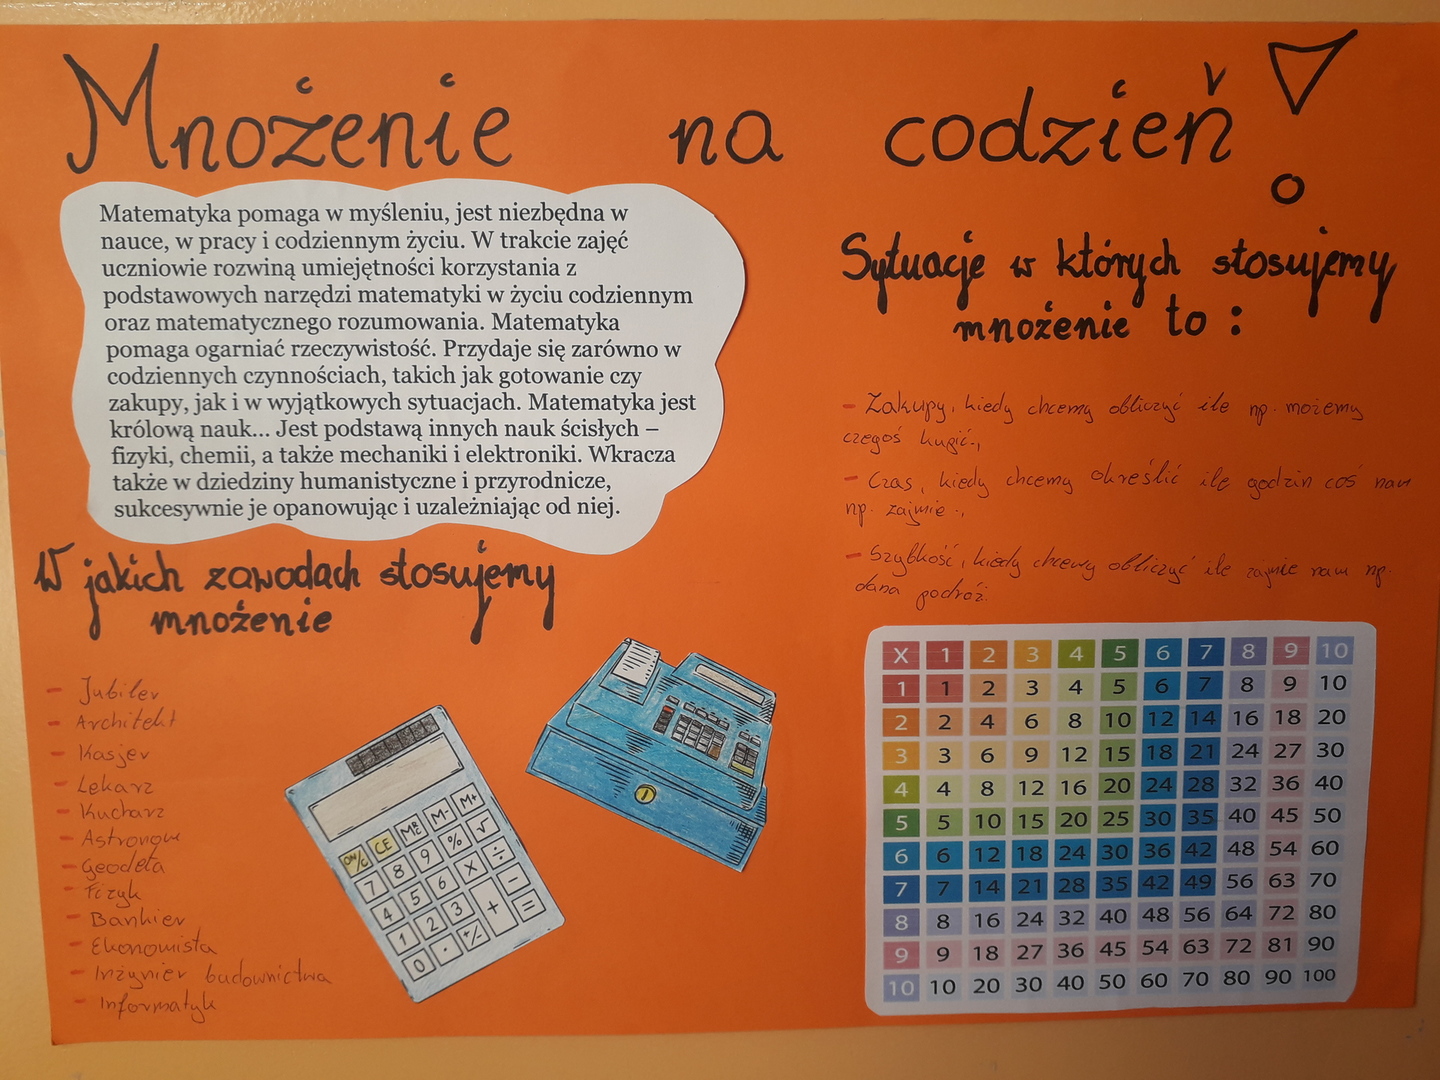 Mnożenie na codzień!
Matematyka pomaga w myśleniu, jest niezbędna w
nauce, w pracy i codziennym życiu. W trakcie zajęć
uczniowie rozwiną umiejętności korzystania z
podstawowych narzędzi matematyki w życiu codziennym
oraz matematycznego rozumowania. Matematyka
pomaga ogarniać rzeczywistość. Przydaje się zarówno w
codziennych czynnościach, takich jak gotowanie czy
zakupy, jak i w wyjątkowych sytuacjach. Matematyka jest
królową nauk... Jest podstawą innych nauk ścisłych –
fizyki, chemii, a także mechaniki i elektroniki. Wkracza
także w dziedziny humanistyczne i przyrodnicze,
sukcesywnie je opanowując i uzależniając od niej.
W jakich zawodach stosujemy
mnożenie
- Jubiler
- Architekt
- Kasjer
- Lekarz
- Kucharz
- Astronom
- Geodeta
- Fizyk
- Bankier
- Ekonomista
- Inżynier budownictwa
- Informatyk
ON/C CE MRC M- M+
7 8 9 % √
4 5 6 X ÷
1 2 3 + −
0 . +/- =
Sytuacje w których stosujemy
mnożenie to :
- Zakupy, kiedy chcemy obliczyć ile np. możemy
czegoś kupić.,
- Czas, kiedy chcemy określić ile godzin coś nam
np. zajmie.,
- Szybkość, kiedy chcemy obliczyć ile zajmie nam np.
dana podróż.
X 1 2 3 4 5 6 7 8 9 10
1 1 2 3 4 5 6 7 8 9 10
2 2 4 6 8 10 12 14 16 18 20
3 3 6 9 12 15 18 21 24 27 30
4 4 8 12 16 20 24 28 32 36 40
5 5 10 15 20 25 30 35 40 45 50
6 6 12 18 24 30 36 42 48 54 60
7 7 14 21 28 35 42 49 56 63 70
8 8 16 24 32 40 48 56 64 72 80
9 9 18 27 36 45 54 63 72 81 90
10 10 20 30 40 50 60 70 80 90 100